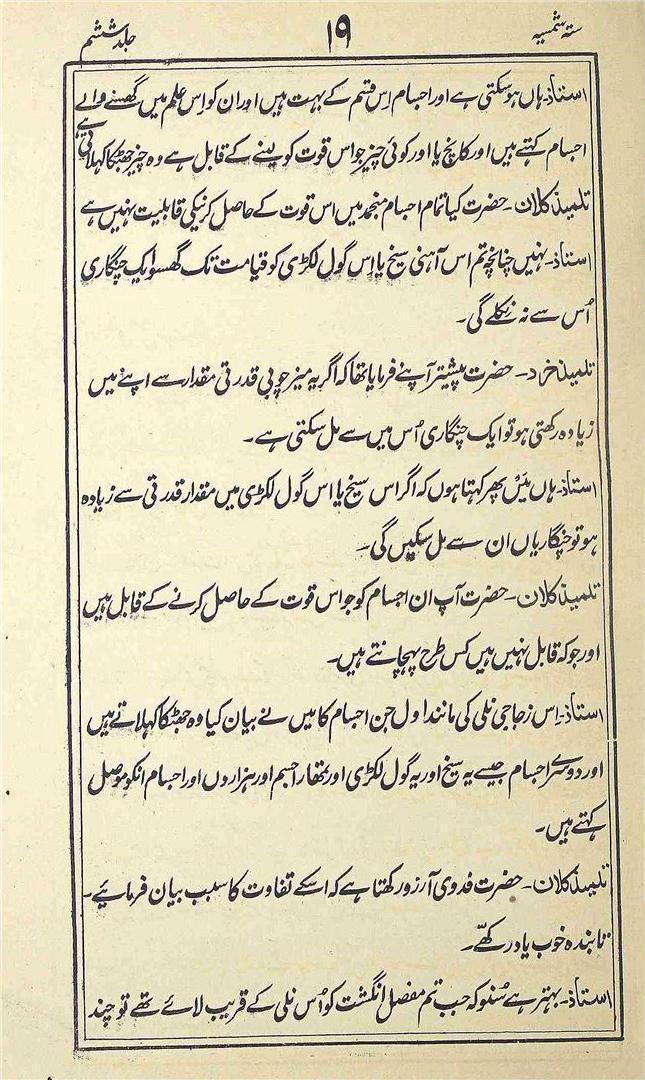 ستہ شمسیہ ۱۹ جلد ششم
استاذ۔ ہاں ہو سکتی ہے اور اجسام اس قسم کے بہت ہیں اور ان کو اِس علم میں گھسنے والے
اجسام کہتے ہیں اور کانچ یا اور کوئی چیز جو اس قوت کو لینے کے قابل ہے وہ چیز جھٹکا کہلاتی ہے
تلمیذ کلان۔ حضرت کیا تمام اجسام منجمد میں اس قوت کے حاصل کرنیکی قابلیت نہیں ہے
استاذ۔ نہیں چنانچہ تم اس آہنی سیخ یا اِس گول لکڑی کو قیامت تک گھسو ایک چنگاری
اُس سے نہ نکلے گی۔
تلمیذ خرد۔ حضرت پیشتر آپنے فرمایا تھا کہ اگر یہ میز چوبی قدرتی مقدار سے اپنے میں
زیادہ رکھتی ہو تو ایک چنگاری اُس میں سے مل سکتی ہے۔
استاذ۔ ہاں مَیں پھر کہتا ہوں کہ اگر اس سیخ یا اس گول لکڑی میں مقدار قدرتی سے زیادہ
ہو تو چنگاریاں ان سے مل سکیں گی۔
تلمیذ کلان۔ حضرت آپ ان اجسام کو جو اس قوت کے حاصل کرنے کے قابل ہیں
اور جو کہ قابل نہیں ہیں کس طرح پہچانتے ہیں۔
استاذ۔ اِس زجاجی نلی کی مانند اول جن اجسام کا میں نے بیان کیا وہ جھٹکا کہلاتے ہیں
اور دوسرے اجسام جیسے یہ سیخ اور یہ گول لکڑی اور تمھارا جسم اور ہزاروں اور اجسام انکو موصل
کہتے ہیں۔
تلمیذ کلان۔ حضرت فدوی آرزو رکھتا ہے کہ اسکے تفاوت کا سبب بیان فرمائیے۔
تا بندہ خوب یاد رکھے۔
استاذ۔ بہتر ہے سُنو کہ جب تم مفصل انگشت کو اُس نلی کے قریب لائے تھے تو چند